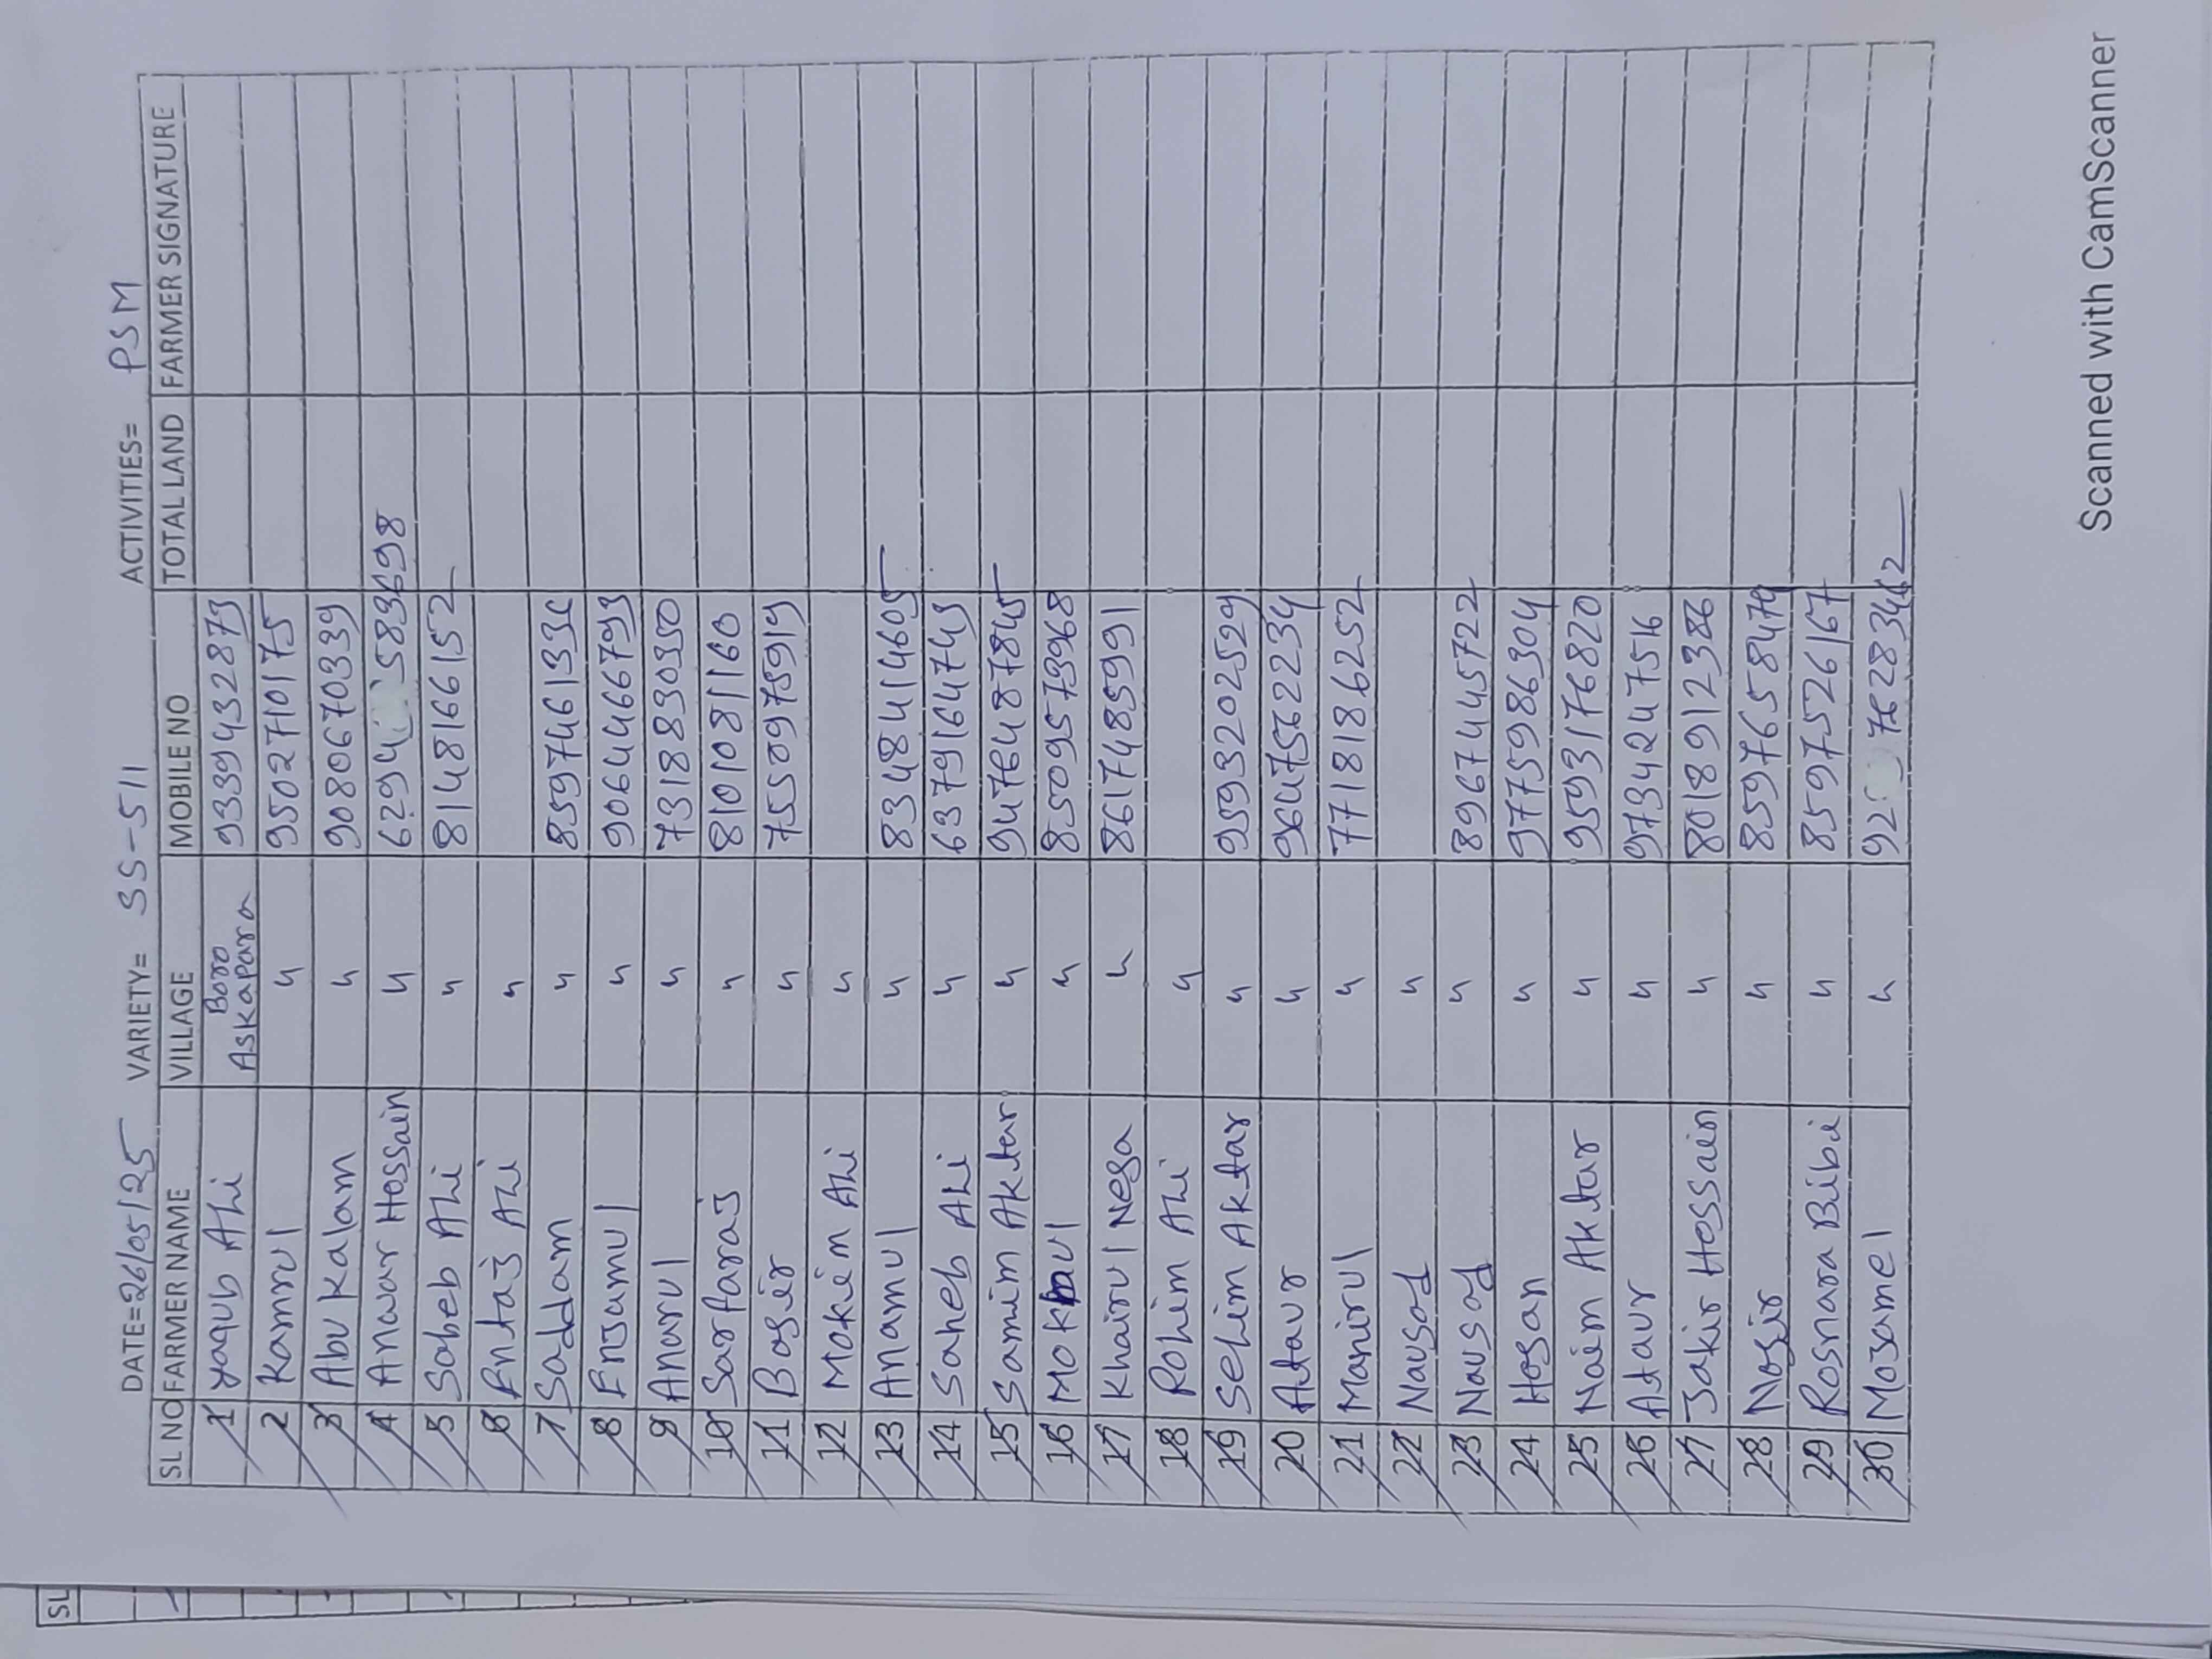 DATE=26/05/25 VARIETY= SS-511 ACTIVITIES= PSM
SL NO FARMER NAME VILLAGE MOBILE NO TOTAL LAND FARMER SIGNATURE
1 Yaqub Ali Boro Askapara 9339432873
2 Kamrul " 9502710175
3 Abu Kalam " 9080670339
4 Anwar Hossain "
5 Soheb Ali " 8148166152
6 Entaj Ali "
7 Saddam " 8597461336
8 Enjamul " 9064466793
9 Anarul " 7318830350
10 Sarfaraj " 8101081160
11 Bosir " 7550975919
12 Mokim Ali "
13 Anamul " 8348414605
14 Saheb Ali " 6379164743
15 Samim Aktar " 9476487845
16 "
17 Khairul Nesa " 8617485991
18 Rohim Ali "
19 Selim Aktar " 9593202529
20 Ataur " 9647562234
21 Manirul " 7718186252
22 Nausad "
23 Nausad " 8967445722
24 Hosan " 9775986304
25 Naim Aktar " 9593176820
26 Ataur " 9734247516
27 Jakir Hossain " 8018912386
28 Nosir " 8597658479
29 Rosnara Bibi " 8597526167
30 Mosamel "
SL
Scanned with CamScanner